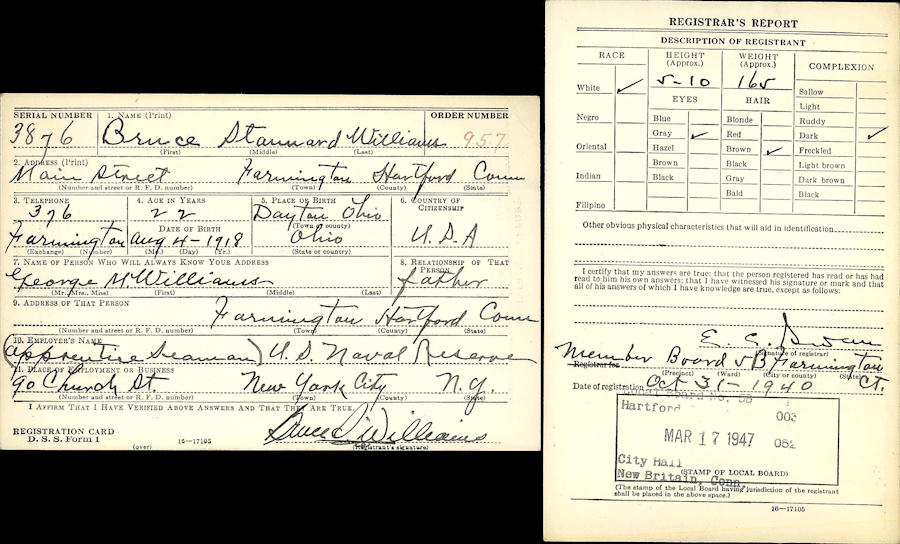 SERIAL NUMBER 1. NAME (Print) ORDER NUMBER
3876 Bruce Stannard Williams 957
(First) (Middle) (Last)
2. ADDRESS (Print)
Main Street Farmington Hartford Conn
(Number and street or R. F. D. number) (Town) (County) (State)
3. TELEPHONE 4. AGE IN YEARS 5. PLACE OF BIRTH 6. COUNTRY OF CITIZENSHIP
376 22 Dayton Ohio
DATE OF BIRTH (Town or county)
Farmington Aug 4-1918 Ohio U.S.A
(Exchange) (Number) (Mo.) (Day) (Yr.) (State or country)
7. NAME OF PERSON WHO WILL ALWAYS KNOW YOUR ADDRESS 8. RELATIONSHIP OF THAT PERSON
George M. Williams father
(Mr., Mrs., Miss) (First) (Middle) (Last)
9. ADDRESS OF THAT PERSON
Farmington Hartford Conn
(Number and street or R. F. D. number) (Town) (County) (State)
10. EMPLOYER'S NAME
(apprentice Seaman) U.S. Naval Reserve
11. PLACE OF EMPLOYMENT OR BUSINESS
90 Church St. New York City N.Y.
(Number and street or R. F. D. number) (Town) (County) (State)
I AFFIRM THAT I HAVE VERIFIED ABOVE ANSWERS AND THAT THEY ARE TRUE.
REGISTRATION CARD
D. S. S. Form 1 16-17105 Bruce S Williams
(over) (Registrant's signature)
REGISTRAR'S REPORT
DESCRIPTION OF REGISTRANT
RACE HEIGHT (Approx.) WEIGHT (Approx.) COMPLEXION
5-10 165
White ✓ EYES HAIR Sallow
Light
Negro Blue Blonde Ruddy
Gray ✓ Red Dark ✓
Oriental Hazel Brown ✓ Freckled
Brown Black Light brown
Indian Black Gray Dark brown
Bald Black
Filipino
Other obvious physical characteristics that will aid in identification
I certify that my answers are true; that the person registered has read or has had
read to him his own answers; that I have witnessed his signature or mark and that
all of his answers of which I have knowledge are true, except as follows:
E. C.
(Signature of registrar)
Member Board 5B Farmington Ct.
Registrar for (Precinct) (Ward) (City or county) (State)
Date of registration Oct 31-1940
Local Board No. 5B 1
Hartford 003
MAR 17 1947 052
City Hall
New Britain, Conn.
(STAMP OF LOCAL BOARD)
(The stamp of the Local Board having jurisdiction of the registrant
shall be placed in the above space.)
16-17105